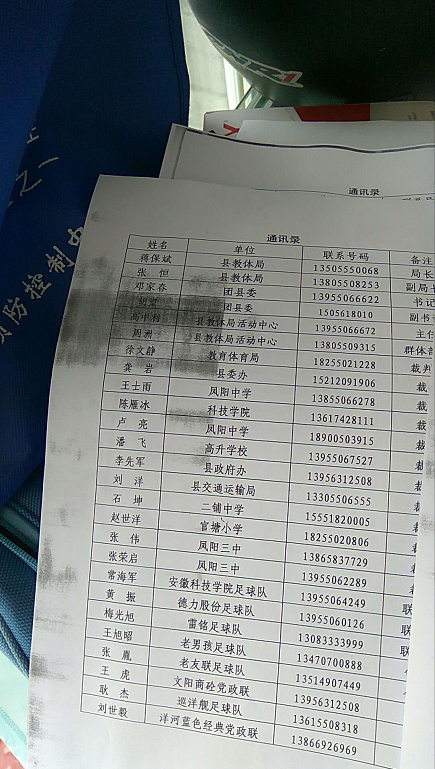 通讯录
通讯录
姓名 单位 联系号码 备注
蒋保斌 县教体局 13505550068 局长
张 恒 县教体局 13805508253 副局
邓家春 团县委 13955066622 书记
团县委 1505618010 副书
高中利 县教体局活动中心 13955066672 主任
周洲 县教体局活动中心 13805509315 群体
徐文静 教育体育局 18255021228 裁判
龚 岩 县委办 15212091906 裁
王士雨 凤阳中学 13855066278 裁
陈雁冰 科技学院 13617428111 裁
卢 亮 凤阳中学 18900503915 裁
潘 飞 高升学校 13955067527 裁
李先军 县政府办 13956312508
刘 洋 县交通运输局 13305506555
石 坤 二铺中学 15551820005
赵世洋 官塘小学 18255020806
张 伟 凤阳三中 13865837729
张荣启 凤阳三中 13955062289
常海军 安徽科技学院足球队 13955064249 联
黄 振 德力股份足球队 13955060126 联
梅光旭 雷铭足球队 13083333999 联
王旭昭 老男孩足球队 13470700888
张 胤 老友联足球队 13514907449
王 虎 文阳商砼党政联 13956312508
耿 杰 巡洋舰足球队 13615508318
刘世毅 洋河蓝色经典党政联 13866926969
之一
预防控制中